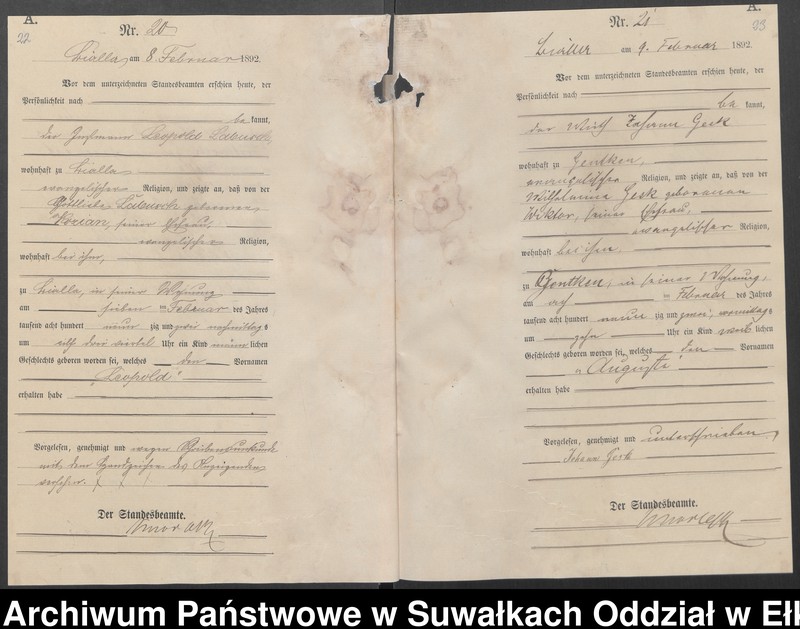 A.
22
Nr. 20
Bialla, am 8. Februar 1892.
Vor dem unterzeichneten Standesbeamten erschien heute, der
Persönlichkeit nach
bekannt,
der Leopold
wohnhaft zu Bialla
evangelischer Religion, und zeigte an, daß von der
geborenen
seiner Ehefrau,
evangelischer Religion,
wohnhaft bei ihm,
zu Bialla, in seiner Wohnung
am sieben ten Februar des Jahres
tausend acht hundert neun zig und zwei nachmittags
um drei viertel Uhr ein Kind männlichen
Geschlechts geboren worden sei, welches den Vornamen
"Leopold"
erhalten habe
Vorgelesen, genehmigt und wegen
mit dem Handzeichen des Anzeigenden
versehen.
Der Standesbeamte.
A.
23
Nr. 21
am 9. Februar 1892.
Vor dem unterzeichneten Standesbeamten erschien heute, der
Persönlichkeit nach
bekannt,
der Wirth Johann
wohnhaft zu Gentken,
evangelischer Religion, und zeigte an, daß von der
Wilhelmine geborenen
seiner Ehefrau,
evangelischer Religion,
wohnhaft bei ihm.
zu Gentken, in seiner Wohnung,
am ten Februar des Jahres
tausend acht hundert neun zig und zwei, vormittags
um zehn Uhr ein Kind weiblichen
Geschlechts geboren worden sei, welches den Vornamen
"Auguste"
erhalten habe
Vorgelesen, genehmigt und unterschrieben
Johann
Der Standesbeamte.
Archiwum Państwowe w Suwałkach Oddział w Ełk